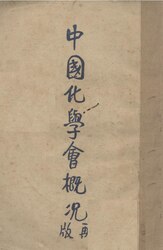 中國化學會概况
再版